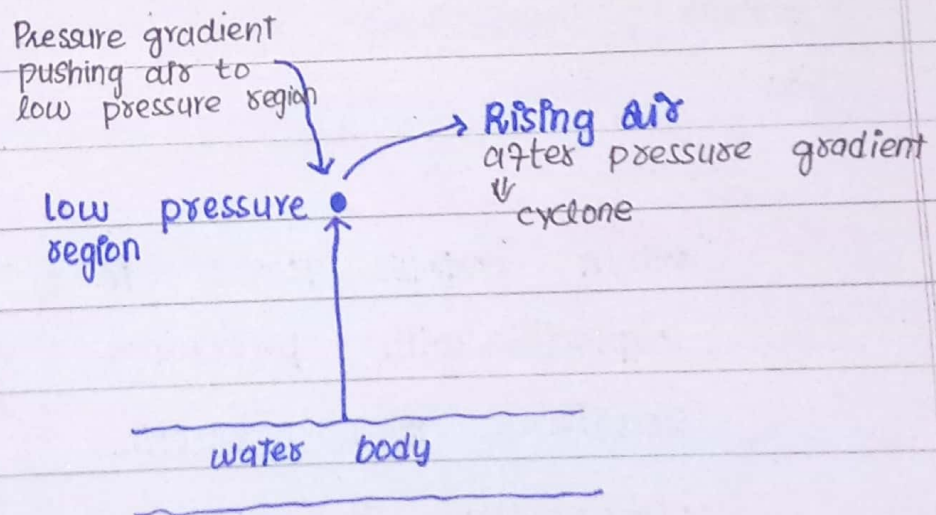 Pressure gradient
pushing air to
low pressure region
Rising air
after pressure gradient
cyclone
low pressure
region
water body